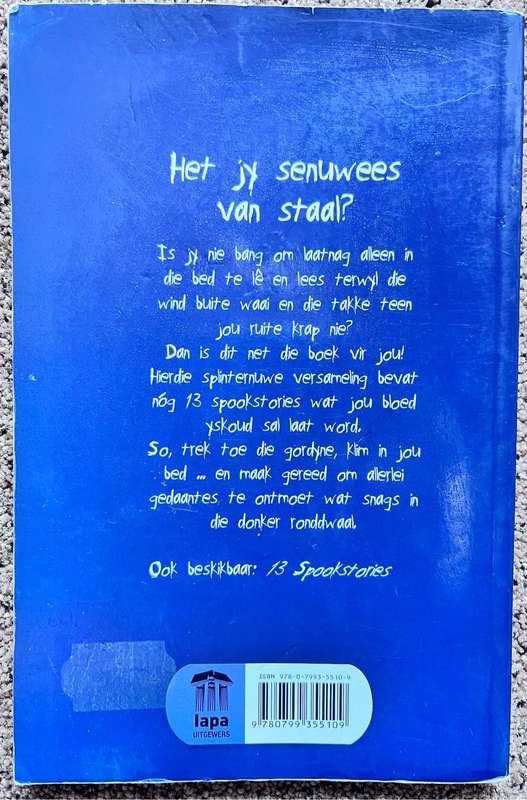 Het jy senuwees
van staal?
Is jy nie bang om laatnag alleen in
die bed te lê en lees terwyl die
wind buite waai en die takke teen
jou ruite krap nie?
Dan is dit net die boek vir jou!
Hierdie splinternuwe versameling bevat
nóg 13 spookstories wat jou bloed
yskoud sal laat word.
So, trek toe die gordyne, klim in jou
bed ... en maak gereed om allerlei
gedaantes te ontmoet wat snags in
die donker ronddwaal.
Ook beskikbaar: 13 Spookstories
ISBN 978-0-7993-5510-9
lapa
UITGEWERS
9 780799 355109